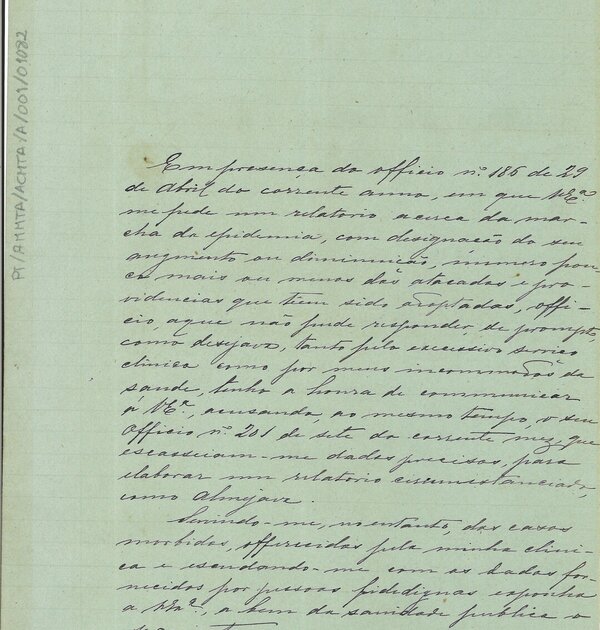 PT/AMMTA/ACMTA/A/001/01082
Em presença do officio nº 186 de 29
de Abril do corrente anno, em que VExª
me pede um relatorio acerca da mar-
cha da epidemia, com designação do seu
augmento ou diminuição, numero pou
co mais ou menos dos atacados e pro-
videncias que tem sido adoptadas, offi-
cio, a que não pude responder de prompto,
como desejava, tanto pelo excessivo serviço
clinico como por meus incommodos da
saude, tenho a honra de communicar
á VExª, acusando, ao mesmo tempo, o seu
officio nº 201 de sete do corrente mez, que
escasseiam-me dados precisos, para
elaborar um relatorio circumstanciado,
como almejava.
Servindo-me, no entanto, dos casos
morbidos, offerecidos pela minha clini-
ca e escudando-me com os dados for-
necidos por pessoas fidedignas exponho
a VExª, a bem da sanidade publica o